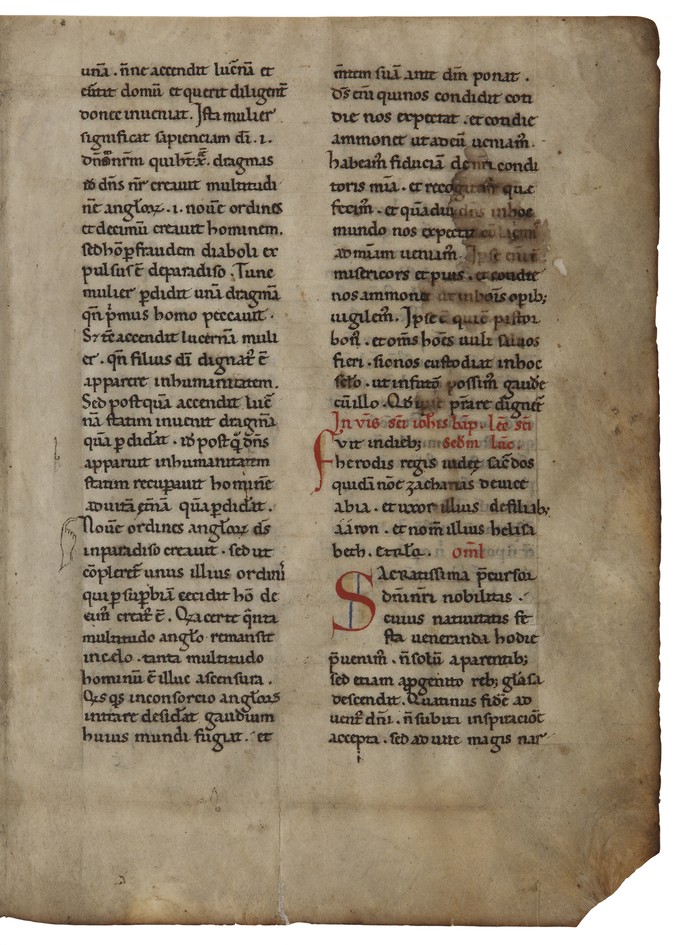 unā. n̄ne accendit lucerā et
eūtit domū et querit diligent̄
donec inueniat. Ista mulier
significat sapienciam dī. i.
dragmas
dn̄s nr̄ creauit multitudi
nē angl̄oꝝ. i. nouē ordines
et decimū creauit hominem.
sed hō ꝑ fraudem diaboli ex
pulsus ē de paradiso. Tunc
mulier ꝑdidit unā dragmā
qn̄ p̄mus homo peccauit.
accendit lucernā muli
er. qn̄ filius dī dignatꝰ ē
apparere in humanitatem.
Sed postquā accendit lucē
nā statim inuenit dragmā
quā ꝑdidat. postꝗ dn̄s
apparuit in humanitatem
statim recuꝑauit hominē
ad uitā et̄nā quā ꝑdidat.
Nouē ordines angl̄oꝝ ds̄
in paradiso creauit. sed ut
cōpleret̄ unus illius ordinū
qui ꝑ suꝑbiā cecidit hō de
eum creatꝰ ē. Quia certe q̄nta
multitudo angl̄o remansit
in celo. tanta multitudo
hominū ē illuc ascensura.
in consorcio angl̄oꝝ
intrare desid̄at gaudium
huius mundi fugiat. et
m̄tem suā ante dm̄ ponat.
ds̄ enī qui nos condidit coti
die nos expectat. et cotidie
ammonet ut ad eū ueniam̄.
habeam̄ fiduciā de nr̄i condi
toris mīa. et recogitem̄ que
fecim̄. et quādiu dn̄s in hoc
mundo nos expectat
ad mīam ueniam̄. Ipse enī ē
misericors et pius. et cotidie
nos ammonet ut in bonis opib;
uigilem̄. Ipse ē qui ē pastor
bonꝰ. et om̄s hoēs uult saluos
fieri. sic nos custodiat in hoc
sc̄lo. ut in futō possim̄ gaude
cū illo. Qd̄ ip̄e p̄stare dignet̄
In viḡ. sc̄i ioh̄is bap̄. lec̄ sc̄i
Fvit in dieb; sedm̄ luc̄.
herodis regis iudeę sac̄dos
quidā nōe zacharias de uice
abia. et uxor illius de filiab;
aaron. et nom̄ illius helisa
beth. Et rl̄a. oml̄
Sacratissima p̄cursor
dn̄i nr̄i nobilitas.
cuius natiuitatis fe
sta ueneranda hodie
p̄uenim̄. n̄ solū a parentib;
sed etiam a progenito reb; gl̄osa
descendit. Quatinus fidē ad
uent̄ dn̄i. n̄ subita inspiracioē
accepta. sed ad uite magis nar